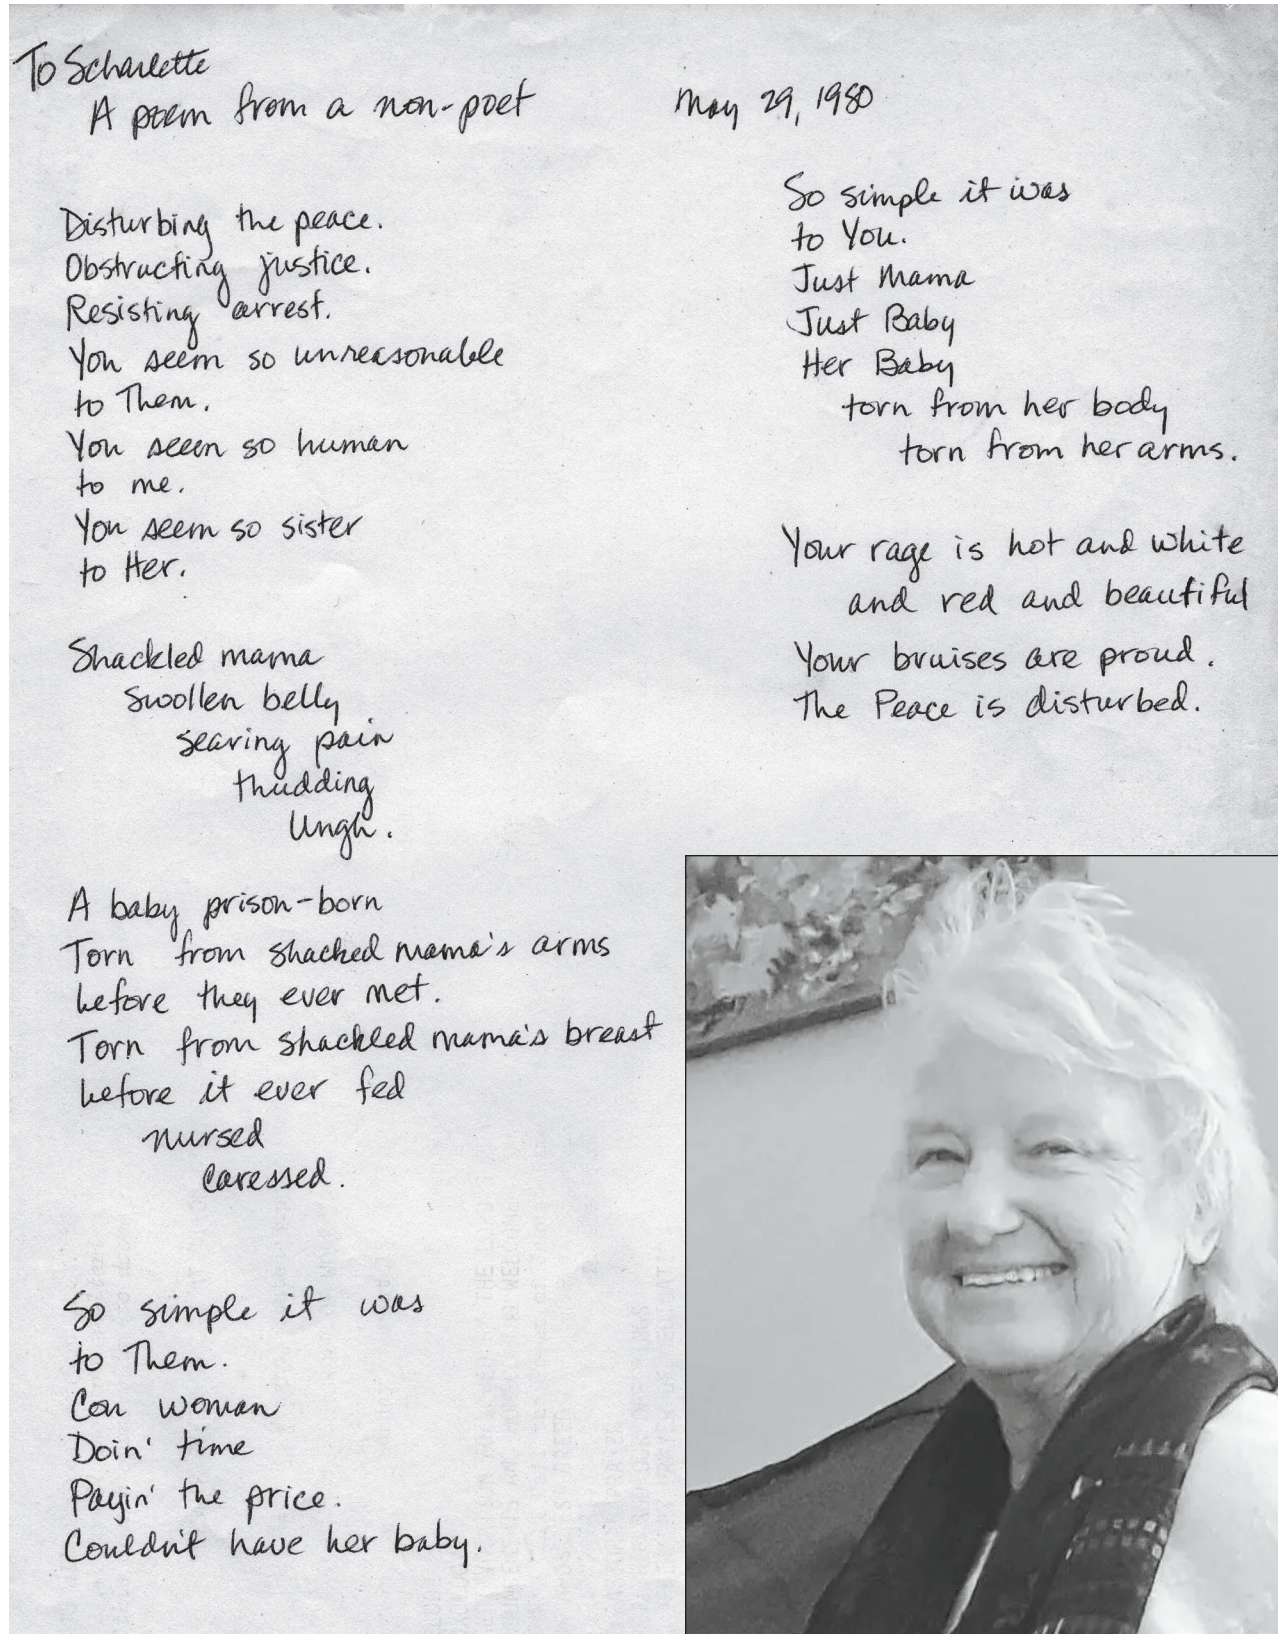 To Scharlette
A poem from a non-poet
May 29, 1980
Disturbing the peace.
Obstructing justice.
Resisting arrest.
You seem so unreasonable
to Them.
You seem so human
to me.
You seem so sister
to Her.
Shackled mama
swollen belly
searing pain
thudding
Ungh.
A baby prison-born
Torn from shacked mama's arms
before they ever met.
Torn from shackled mama's breast
before it ever fed
nursed
caressed.
So simple it was
to Them.
Con woman
Doin' time
Payin' the price.
Couldn't have her baby.
So simple it was
to You.
Just Mama
Just Baby
Her Baby
torn from her body
torn from her arms.
Your rage is hot and white
and red and beautiful
Your bruises are proud.
The Peace is disturbed.